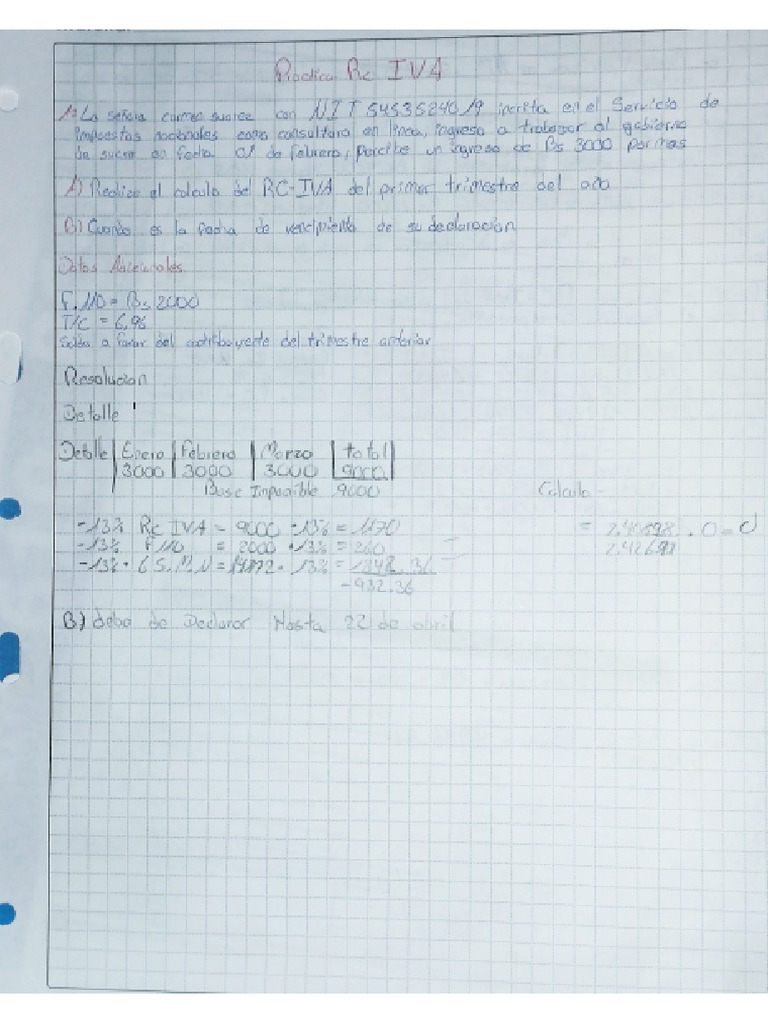 Practica Rc IVA
1.- La señora carmen suarez con NIT 5453524019 incrita en el Servicio de
impuestos nacionales como consultora en linea, ingreso a trabajar al gobierno
de sucre en fecha 01 de febrero, percibe un ingreso de Bs 3000 por mes
A) Realize el calculo del RC-IVA del primer trimestre del año
B) Cuando es la fecha de vencimiento de su declaracion
Datos Adicionales
F. 110 = Bs 2000
T/C = 6,96
Saldo a favor del contribuyente del trimestre anterior
Resolucion
Detalle
Detalle Enero Febrero Marzo total
3000 3000 3000 9000
Base Imponible 9000
Calculo -
-13% Rc IVA = 9000 · 13% = 1170
-13% F 110 = 2000 · 13% = 260
-13% · 6 S.M.N = 14172 · 13% = 1842.36
-932.36
. 0 = 0
2,42698
B) debe de Declarar Hasta 22 de abril